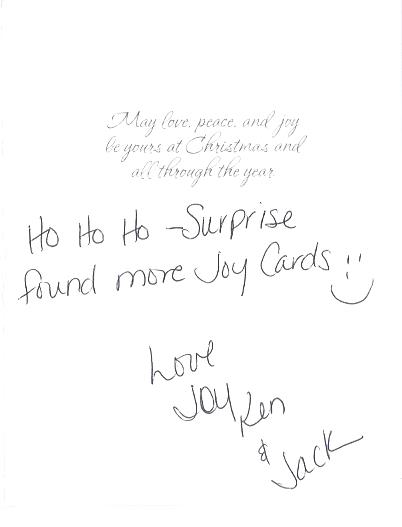 May love, peace, and joy
be yours at Christmas and
all through the year
Ho Ho Ho - Surprise
found more Joy Cards !!
Love
Joy Ken
& Jack